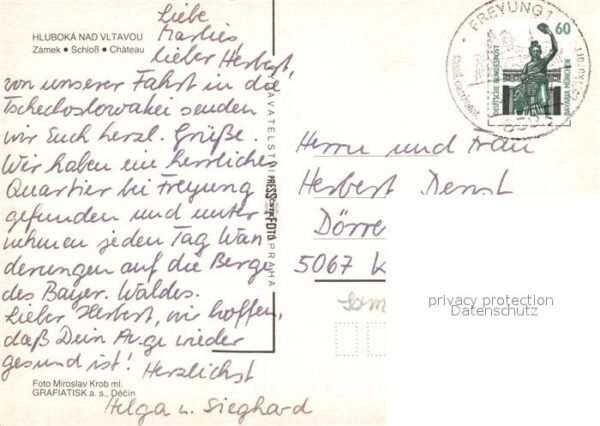 HLUBOKÁ NAD VLTAVOU
Zámek • Schloß • Château
Liebe
Marlies,
lieber Herbert,
von unserer Fahrt in die
Tschechoslowakei senden
wir Euch herzl. Grüße.
Wir haben ein herrliches
Quartier bei Freyung
gefunden und unter
nehmen jeden Tag Wan
derungen auf die Berge
des Bayer. Waldes.
Lieber Herbert, wir hoffen,
daß Dein Auge wieder
gesund ist! Herzlichst
Helga u. Sieghard
Foto Miroslav Krob ml.
GRAFIATISK a. s., Děčín
PRESSFOTO
PRAHA
FREYUNG 1
60
DEUTSCHE BUNDESPOST
BAVARIA MÜNCHEN
Herrn und Frau
Herbert Denst
Dörre
5067 K
privacy protection
Datenschutz